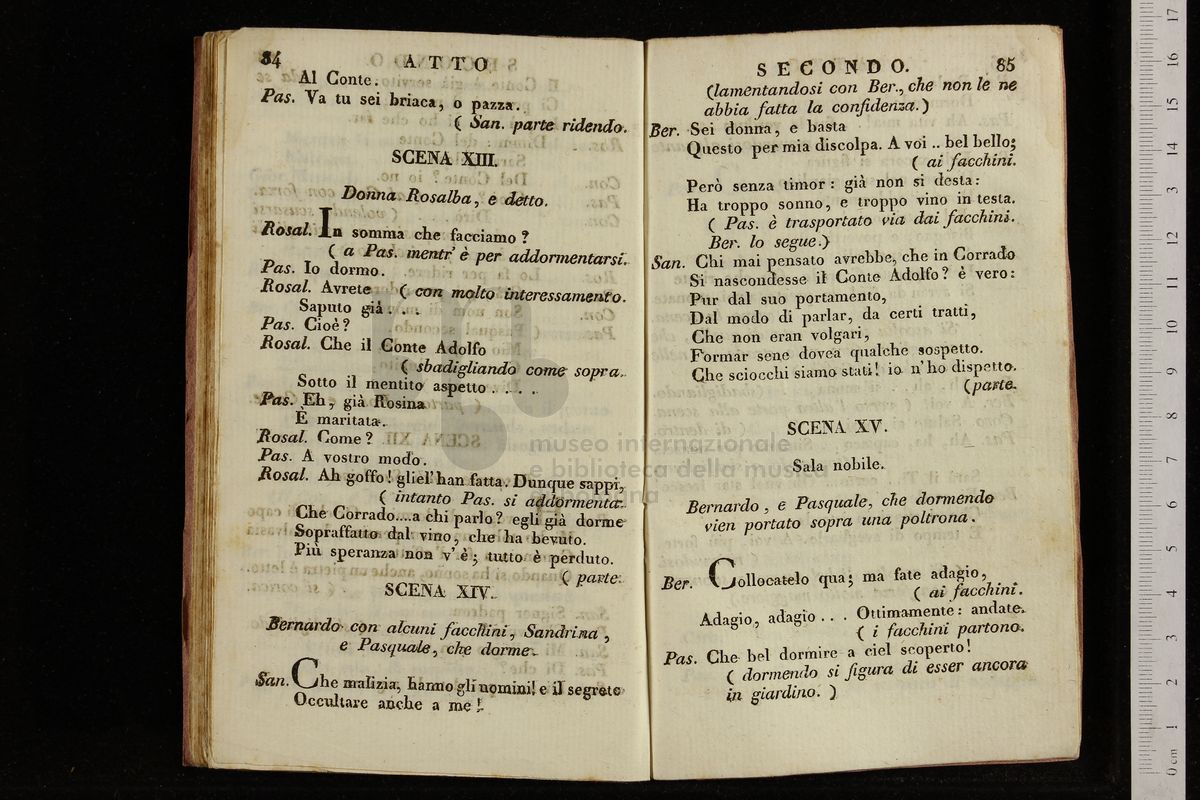 84 ATTO
Al Conte.
Pas. Va tu sei briaca, o pazza.
( San. parte ridendo.
SCENA XIII.
Donna Rosalba, e detto.
Rosal. In somma che facciamo?
( a Pas. mentr' è per addormentarsi.
Pas. Io dormo.
Rosal. Avrete ( con molto interessamento.
Saputo già . . .
Pas. Cioè?
Rosal. Che il Conte Adolfo
( sbadigliando come sopra.
Sotto il mentito aspetto . . . .
Pas. Eh, già Rosina
È maritata.
Rosal. Come?
Pas. A vostro modo.
Rosal. Ah goffo! gliel' han fatta. Dunque sappi,
( intanto Pas. si addormenta.
Che Corrado....a chi parlo? egli già dorme
Sopraffatto dal vino, che ha bevuto.
Più speranza non v' è; tutto è perduto.
( parte.
SCENA XIV.
Bernardo con alcuni facchini, Sandrina,
e Pasquale, che dorme.
San. Che malizia, hanno gli uomini! e il segreto
Occultare anche a me!
SECONDO. 85
(lamentandosi con Ber., che non le ne
abbia fatta la confidenza.)
Ber. Sei donna, e basta
Questo per mia discolpa. A voi .. bel bello;
( ai facchini.
Però senza timor: già non si desta:
Ha troppo sonno, e troppo vino in testa.
( Pas. è trasportato via dai facchini.
Ber. lo segue.)
San. Chi mai pensato avrebbe, che in Corrado
Si nascondesse il Conte Adolfo? è vero:
Pur dal suo portamento,
Dal modo di parlar, da certi tratti,
Che non eran volgari,
Formar sene dovea qualche sospetto.
Che sciocchi siamo stati! io n' ho dispetto.
(parte.
SCENA XV.
Sala nobile.
Bernardo, e Pasquale, che dormendo
vien portato sopra una poltrona.
Ber. Collocatelo qua; ma fate adagio,
( ai facchini.
Adagio, adagio . . . Ottimamente: andate.
( i facchini partono.
Pas. Che bel dormire a ciel scoperto!
( dormendo si figura di esser ancora
in giardino. )
museo internazionale
e biblioteca della musica
di bologna
0 cm 1 2 3 4 5 6 7 8 9 10 11 12 13 14 15 16 17